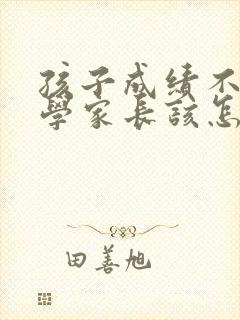 孩子成绩不
學家長該怎
田善旭